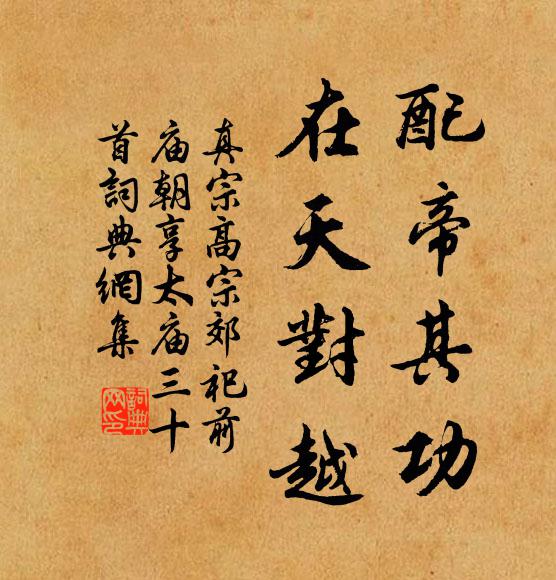 配帝其功
在天對越
真宗高宗郊祀前
庙朝享太庙三十
首詞典網集
詞典網印